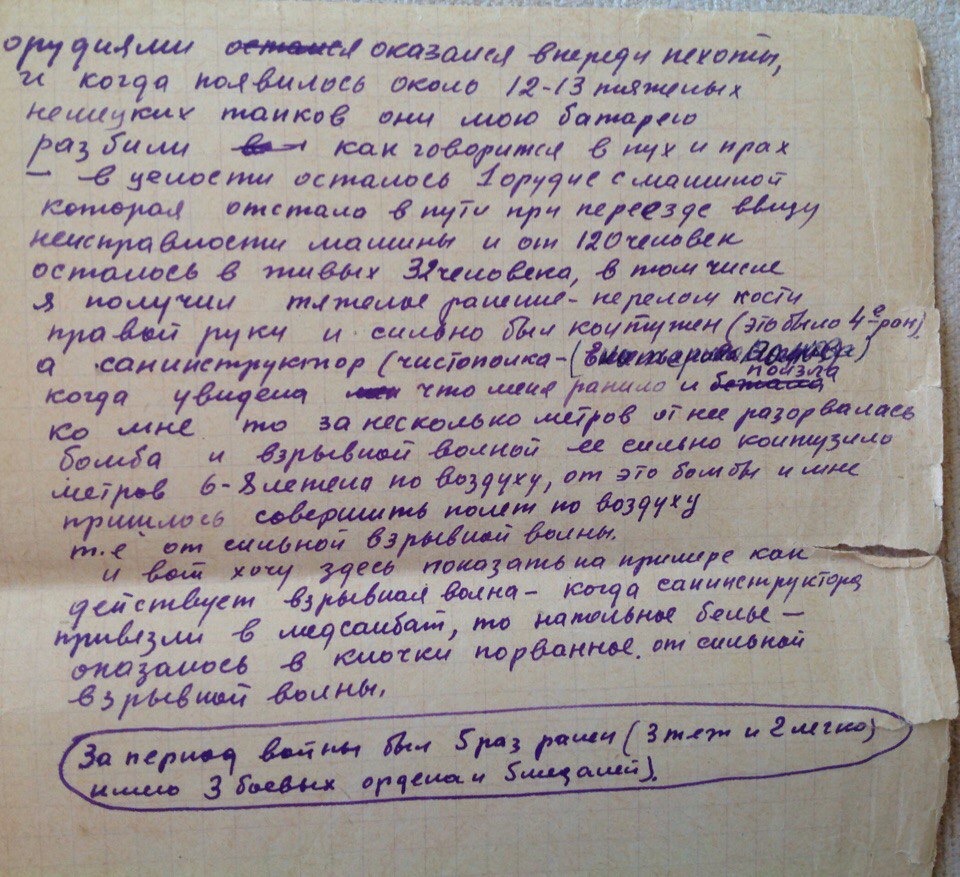 орудиями остался оказался впереди пехоты,
и когда появилось около 12-13 тяжелых
немецких танков они мою батарею
разбили как говорится в пух и прах
— в целости осталось 1 орудие с машиной
которая отстала в пути при переезде ввиду
неисправности машины и от 120 человек
осталось в живых 32 человека, в том числе
я получил тяжелое ранение - перелом кости
правой руки и сильно был контужен (это было 4-е ран)
а санинструктор (чистополка - (
когда увидела что меня ранило и поползла
ко мне то за несколько метров от нее разорвалась
бомба и взрывной волной ее сильно контузило
метров 6-8 летела по воздуху, от это бомбы и мне
пришлось совершить полет по воздуху
т.е от сильной взрывной волны.
и вот хочу здесь показать на примере как
действует взрывная волна - когда санинструктора
привезли в медсанбат, то нательное белье —
оказалось в клочки порванное от сильной
взрывной волны.
За период войны был 5 раз ранен (3 тяж и 2 легко)
имею 3 боевых ордена и 5 медалей).